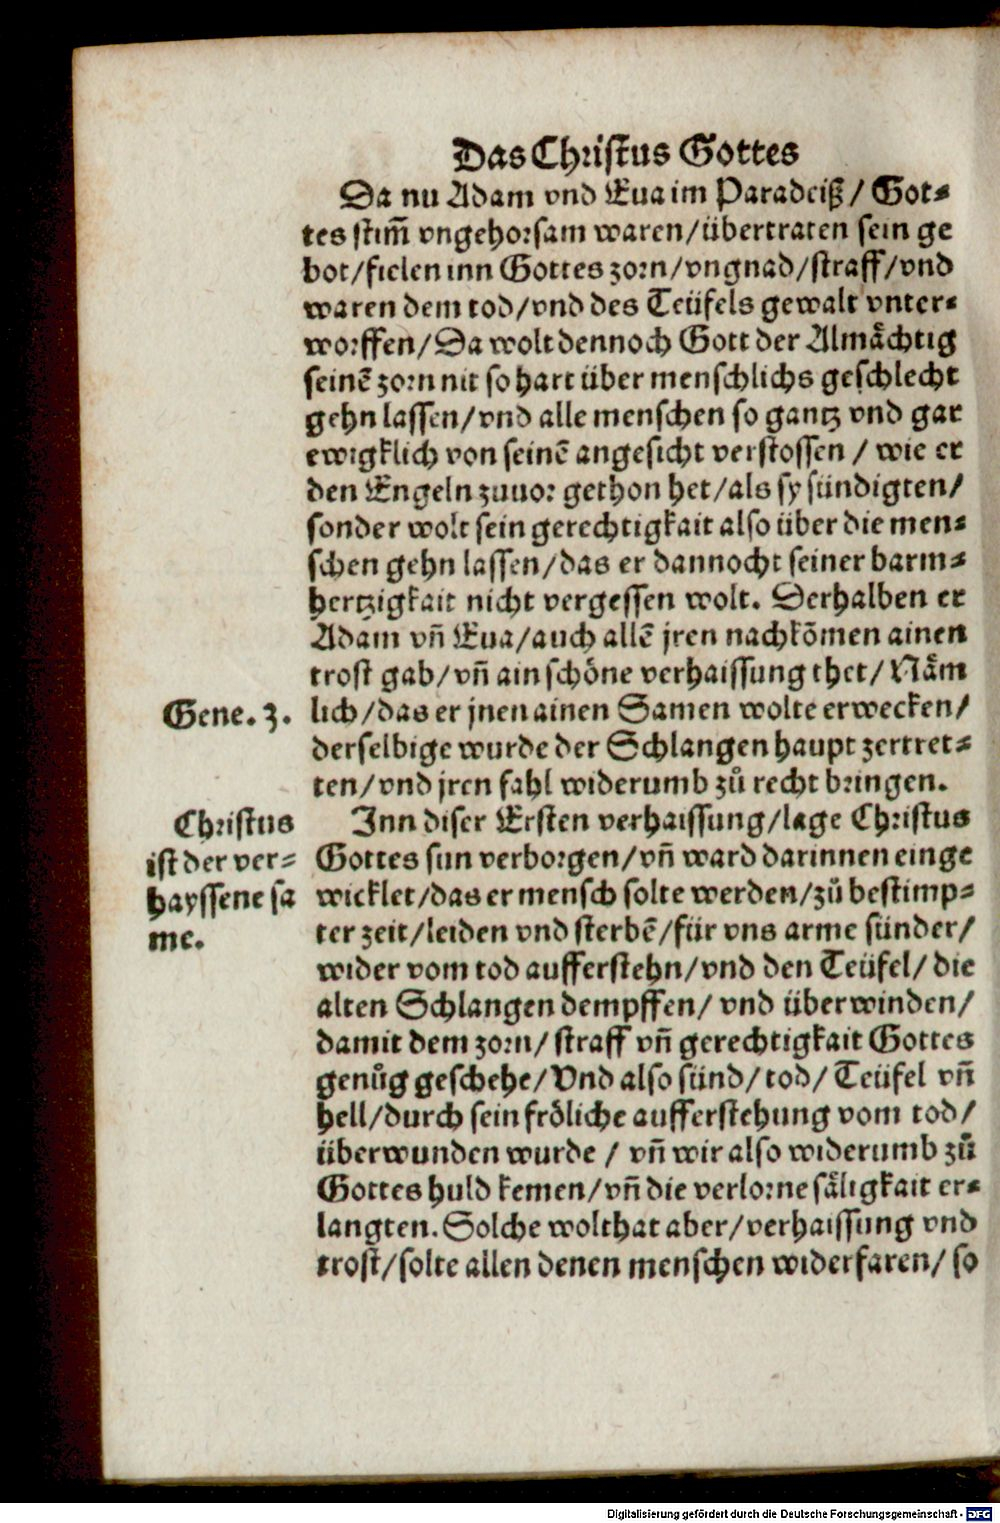 Das Christus Gottes
Da nu Adam vnd Eua im Paradeiß / Got⸗
tes stim̃ vngehorsam waren/übertraten sein ge
bot/fielen inn Gottes zorn/vngnad/straff/vnd
waren dem tod/vnd des Teüfels gewalt vnter⸗
worffen/Da wolt dennoch Gott der Almaͤchtig
seinē zorn nit so hart über menschlichs geschlecht
gehn lassen/vnd alle menschen so gantz vnd gar
ewigklich von seinē angesicht verstossen / wie er
den Engeln zuuor gethon het/als sy sündigten/
sonder wolt sein gerechtigkait also über die men⸗
schen gehn lassen/das er dannocht seiner barm⸗
hertzigkait nicht vergessen wolt. Derhalben er
Adam vñ Eua/auch allē jren nachkōmen ainen
trost gab/vñ ain schöne verhaissung thet/Naͤm
Gene. 3. lich/das er jnen ainen Samen wolte erwecken/
derselbige wurde der Schlangen haupt zertret⸗
ten/vnd jren fahl widerumb zů recht bringen.
Christus
ist der ver⸗
hayssene sa
me.
Inn diser Ersten verhaissung/lage Christus
Gottes sun verborgen/vñ ward darinnen einge
wicklet/das er mensch solte werden/zů bestimp⸗
ter zeit/leiden vnd sterbē/für vns arme sünder/
wider vom tod aufferstehn/vnd den Teüfel/ die
alten Schlangen dempffen/ vnd überwinden/
damit dem zorn/ straff vñ gerechtigkait Gottes
genůg geschehe/Vnd also sünd/tod/ Teüfel vñ
hell/durch sein fröliche aufferstehung vom tod/
überwunden wurde / vñ wir also widerumb zů
Gottes huld kemen/vñ die verlorne saͤligkait er⸗
langten. Solche wolthat aber/verhaissung vnd
trost/solte allen denen menschen widerfaren/ so
Digitalisierung gefördert durch die Deutsche Forschungsgemeinschaft - DFG